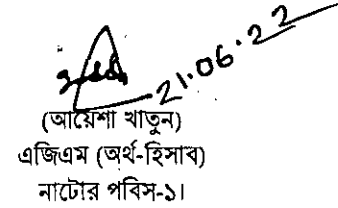 21.06.22
(আয়েশা খাতুন)
এজিএম (অর্থ-হিসাব)
নাটোর পবিস-১।